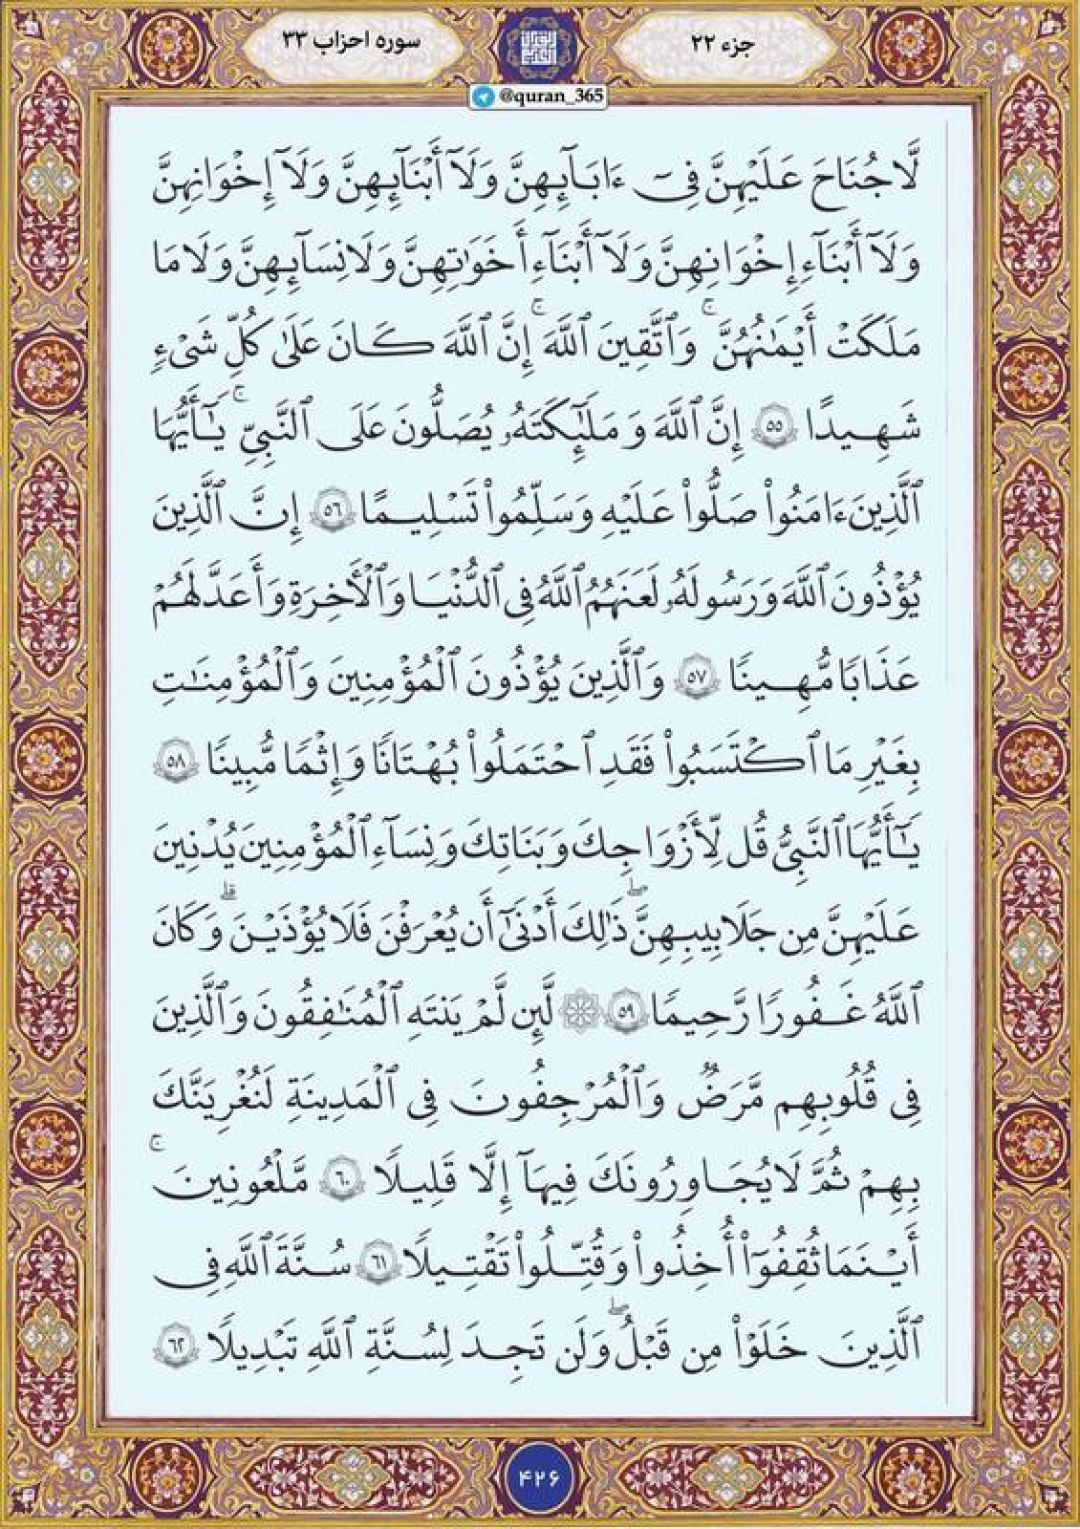 جزء ۲۲
سوره احزاب ۳۳
@quran_365
لَّا جُنَاحَ عَلَيْهِنَّ فِىٓ ءَابَآئِهِنَّ وَلَآ أَبْنَآئِهِنَّ وَلَآ إِخْوَٰنِهِنَّ
وَلَآ أَبْنَآءِ إِخْوَٰنِهِنَّ وَلَآ أَبْنَآءِ أَخَوَٰتِهِنَّ وَلَا نِسَآئِهِنَّ وَلَا مَا
مَلَكَتْ أَيْمَٰنُهُنَّ ۚ وَٱتَّقِينَ ٱللَّهَ ۚ إِنَّ ٱللَّهَ كَانَ عَلَىٰ كُلِّ شَىْءٍ
شَهِيدًا ٥٥ إِنَّ ٱللَّهَ وَمَلَٰٓئِكَتَهُۥ يُصَلُّونَ عَلَى ٱلنَّبِىِّ ۚ يَٰٓأَيُّهَا
ٱلَّذِينَ ءَامَنُوا۟ صَلُّوا۟ عَلَيْهِ وَسَلِّمُوا۟ تَسْلِيمًا ٥٦ إِنَّ ٱلَّذِينَ
يُؤْذُونَ ٱللَّهَ وَرَسُولَهُۥ لَعَنَهُمُ ٱللَّهُ فِى ٱلدُّنْيَا وَٱلْأَخِرَةِ وَأَعَدَّ لَهُمْ
عَذَابًا مُّهِينًا ٥٧ وَٱلَّذِينَ يُؤْذُونَ ٱلْمُؤْمِنِينَ وَٱلْمُؤْمِنَٰتِ
بِغَيْرِ مَا ٱكْتَسَبُوا۟ فَقَدِ ٱحْتَمَلُوا۟ بُهْتَٰنًا وَإِثْمًا مُّبِينًا ٥٨
يَٰٓأَيُّهَا ٱلنَّبِىُّ قُل لِّأَزْوَٰجِكَ وَبَنَاتِكَ وَنِسَآءِ ٱلْمُؤْمِنِينَ يُدْنِينَ
عَلَيْهِنَّ مِن جَلَٰبِيبِهِنَّ ۖ ذَٰلِكَ أَدْنَىٰٓ أَن يُعْرَفْنَ فَلَا يُؤْذَيْنَ ۗ وَكَانَ
ٱللَّهُ غَفُورًا رَّحِيمًا ٥٩ ۞ لَّئِن لَّمْ يَنتَهِ ٱلْمُنَٰفِقُونَ وَٱلَّذِينَ
فِى قُلُوبِهِم مَّرَضٌ وَٱلْمُرْجِفُونَ فِى ٱلْمَدِينَةِ لَنُغْرِيَنَّكَ
بِهِمْ ثُمَّ لَا يُجَاوِرُونَكَ فِيهَآ إِلَّا قَلِيلًا ٦٠ مَّلْعُونِينَ ۚ
أَيْنَمَا ثُقِفُوٓا۟ أُخِذُوا۟ وَقُتِّلُوا۟ تَقْتِيلًا ٦١ سُنَّةَ ٱللَّهِ فِى
ٱلَّذِينَ خَلَوْا۟ مِن قَبْلُ ۖ وَلَن تَجِدَ لِسُنَّةِ ٱللَّهِ تَبْدِيلًا ٦٢
۴۲۶